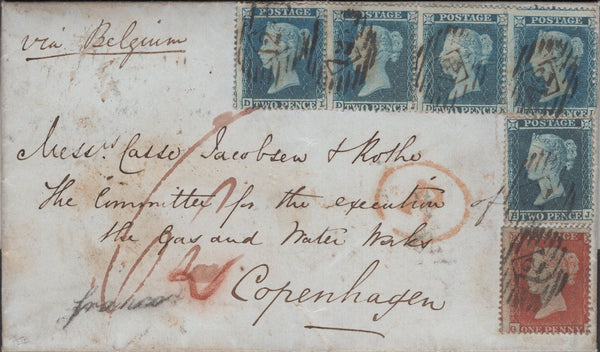 POSTAGE POSTAGE POSTAGE POSTAGE
TWO PENCE TWO PENCE TWO PENCE TWO PENCE
via Belgium
Messrs Casse Jacobsen & Rothe
The Committee for the execution of
the Gas and Water Works
Copenhagen
POSTAGE
TWO PENCE
ONE PENNY